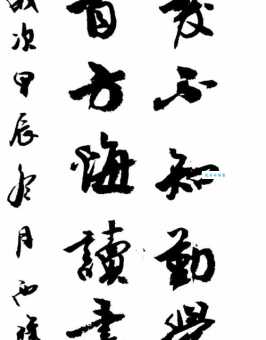 发不知勤學
首方悔讀書
歲次甲辰冬月西